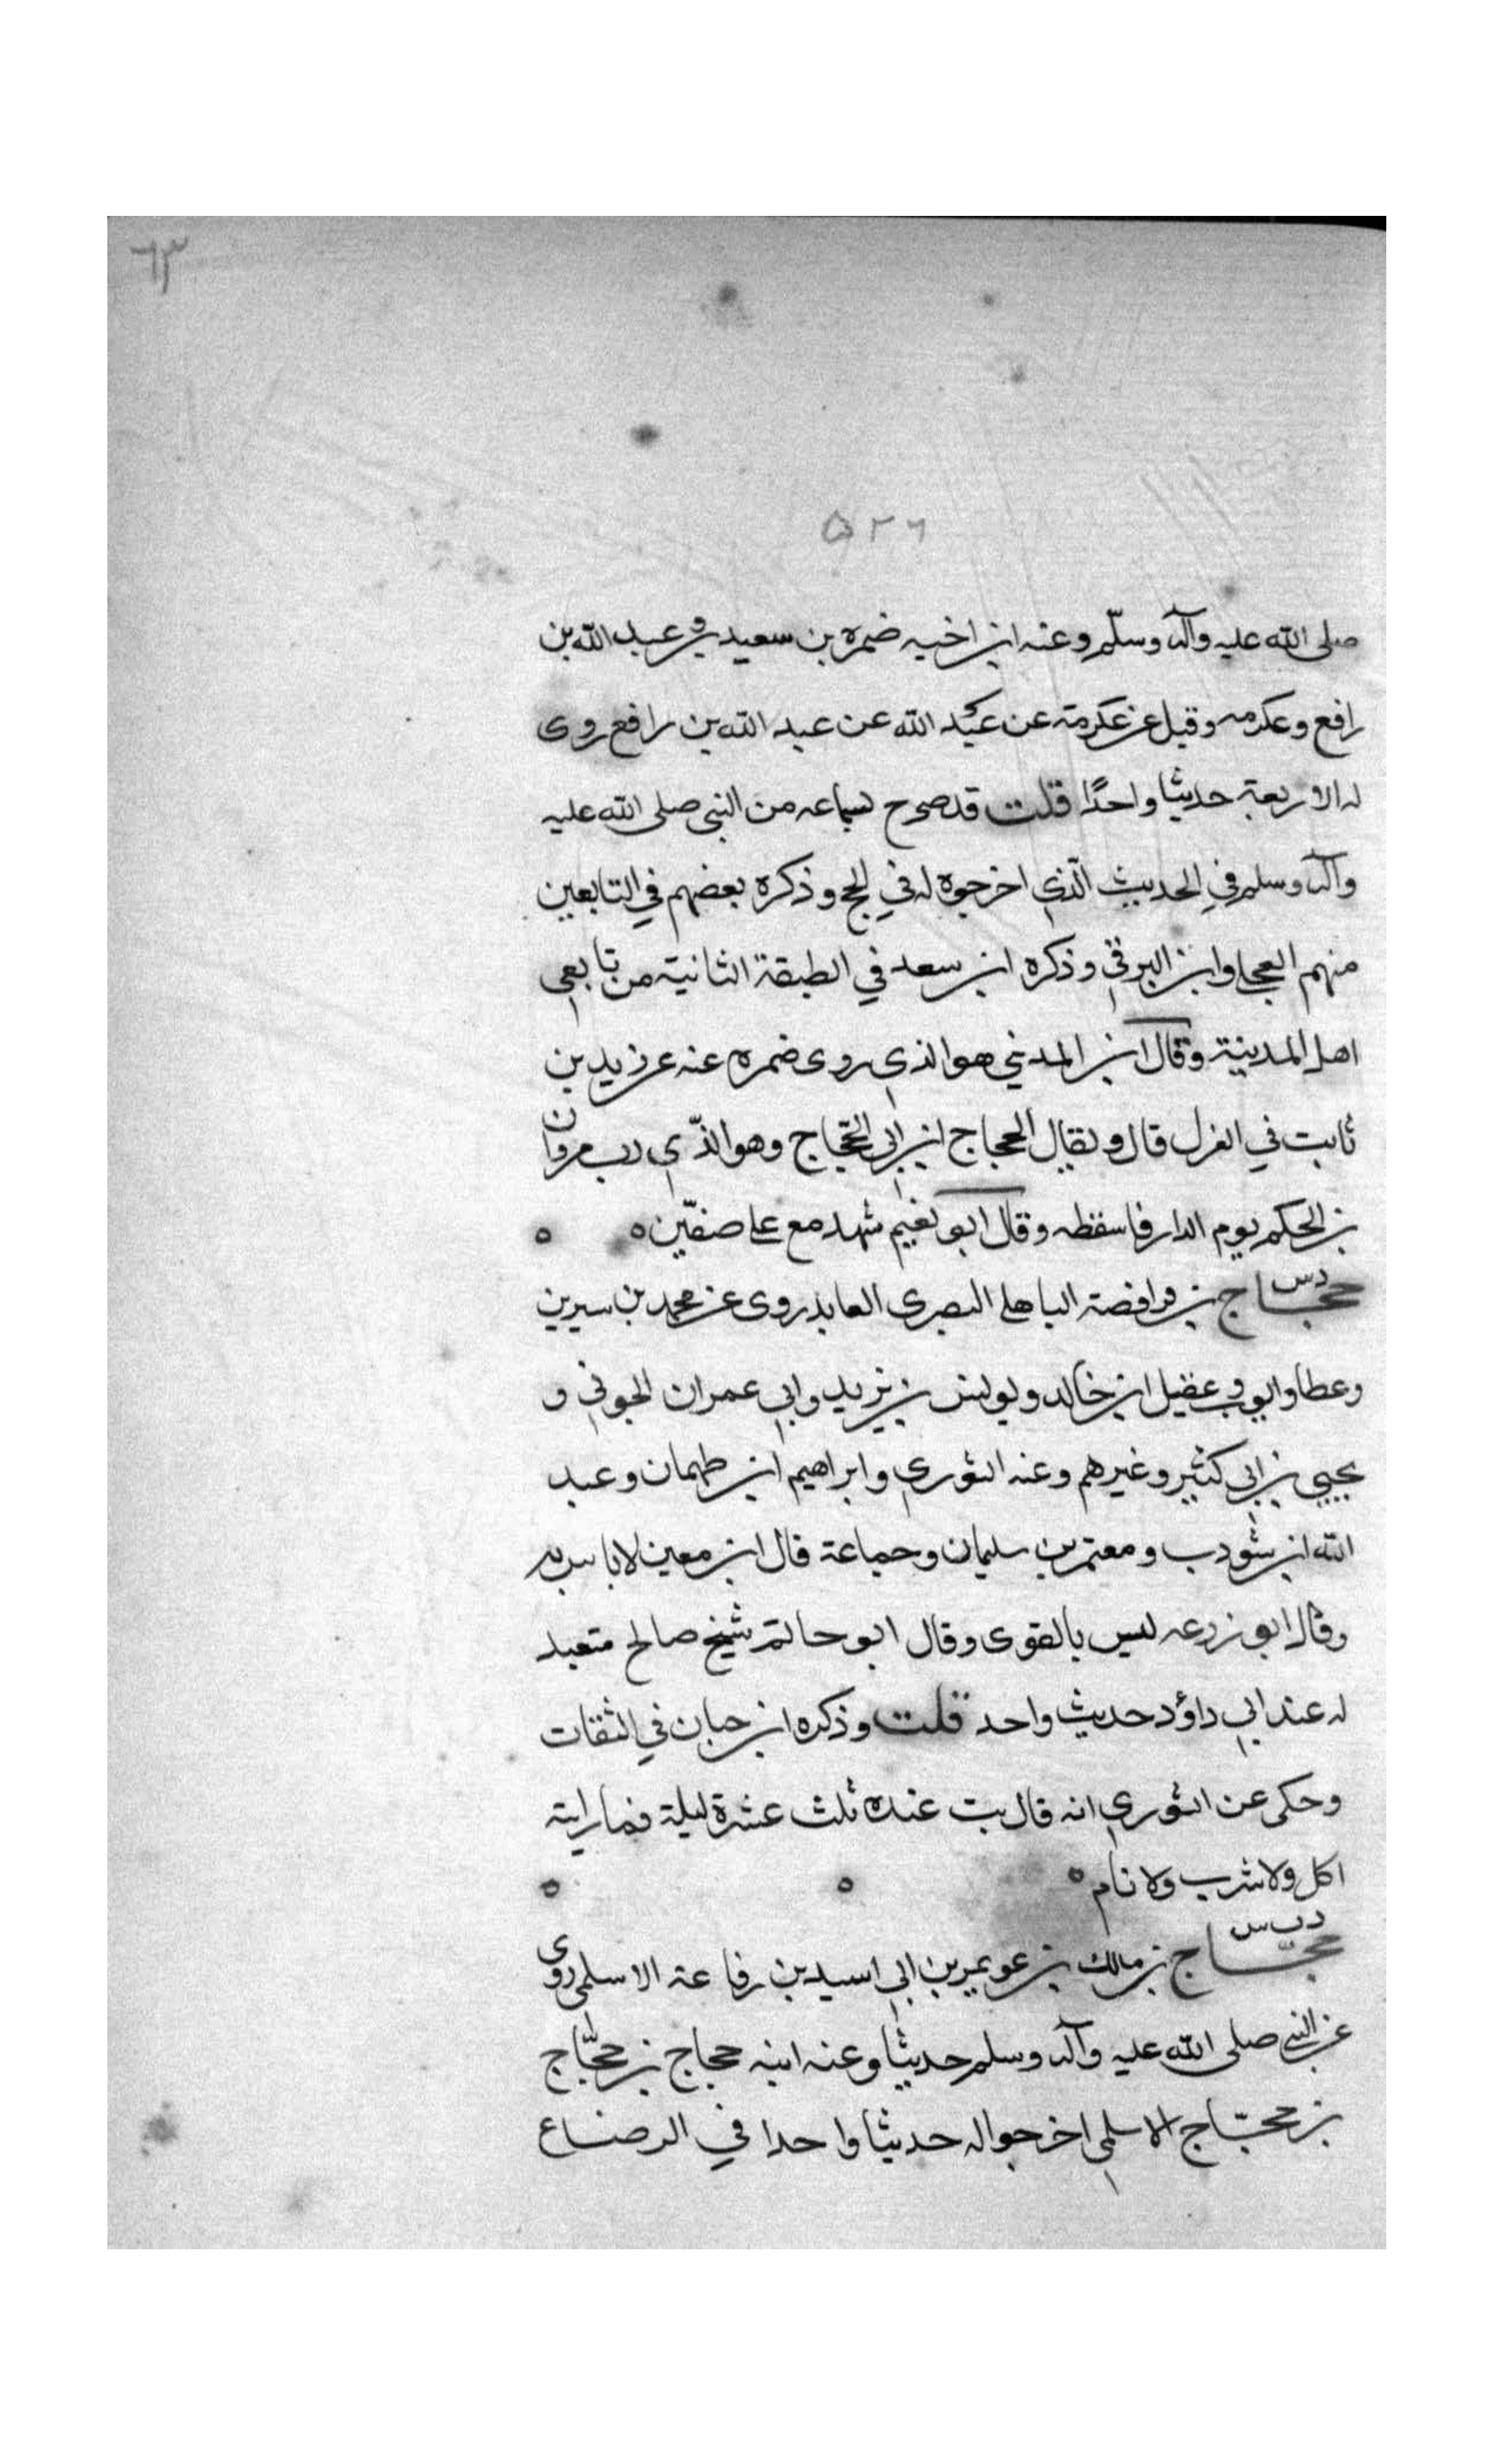 ٦٣
٥٢٦
صلى الله عليه وآله وسلّم وعنه ابن اخيه ضمره بن سعيد وعبد الله بن
رافع وعكرمه وقيل عن عكرمة عن عبد الله عن عبد الله بن رافع روى
له الاربعة حديثا واحدًا قلت قد صرح بسماعه من النبى صلى الله عليه
وآله وسلم في الحديث الّذي اخرجوه له في الحج وذكره بعضهم في التابعين
منهم العجلى وابن البرقي وذكره ابن سعد في الطبقة الثانية من تابعى
اهل المدينة وقال ابن المديني هو الذي روى ضمره عنه عن زيد بن
ثابت في العزل قال ويقال الحجاج ابن ابي الحجّاج وهو الذّي ضرب مروان
بن الحكم يوم الدار فاسقطه وقال ابو نعيم شهد مع على صفّين ٥ ٥
دس
حجاج بن فرافصة الباهلى البصرى العابد روى عن محمد بن سيرين
وعطا وايوب وعقيل ابن خالد ويونس بن يزيد وابي عمران الجوني و
يحيى بن ابي كثير وغيرهم وعنه الثوري وابراهيم ابن طهمان وعبد
الله ابن شوذب ومعتمر بن سليمان وجماعة قال ابن معين لا باس به
وقال ابو زرعه ليس بالقوى وقال ابو حاتم شيخ صالح متعبد
له عند ابي داؤد حديث واحد قلت وذكره ابن حبان في الثقات
وحكى عن الثوري انه قال بت عنده ثلث عشرة ليلة فما رايته
اكل ولا شرب ولا نام ٥ ٥ ٥
دب س
حجّاج بن مالك بن عويمر بن ابي اسيد بن رفاعة الاسلمى روى
عن النبى صلى الله عليه وآله وسلم حديثا وعنه ابنه حجاج بن حجّاج
بن حجّاج الاسلمي اخرجوا له حديثا واحدا في الرضاع